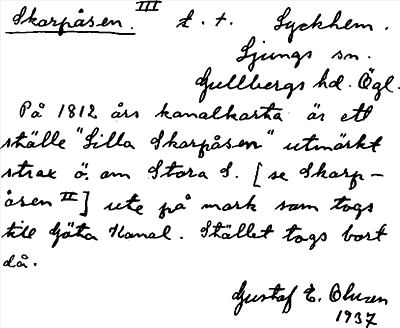 Skarpåsen. III t. t. Lyckhem.
Ljungs sn.
Gullbergs hd. Ögl.
På 1812 års kanalkarta är ett
ställe "Lilla Skarpåsen" utmärkt
strax ö. om Stora S. [se Skarp-
åsen II] ute på mark som togs
till Göta Kanal. Stället togs bort
då.
Gustaf E. Olsson
1937